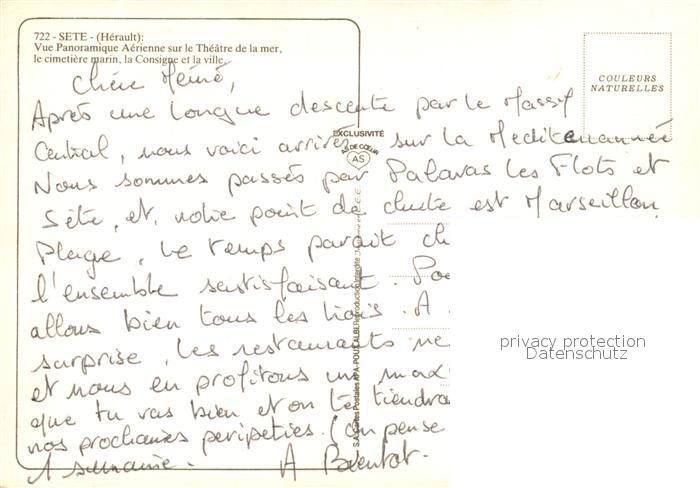 722 - SETE - (Hérault):
Vue Panoramique Aérienne sur le Théâtre de la mer,
le cimetière marin, la Consigne et la ville.
COULEURS
NATURELLES
EXCLUSIVITÉ
AS DE CŒUR
AS
Chère Mémé,
Après une longue descente par le Massif
Central, nous voici arrivés sur la Mediterrannée
Nous sommes passés par Palavas les Flots et
Sète, et, notre point de chute est Marseillan
Plage, Le temps paraît ch
l'ensemble satisfaisant. Po
allons bien tous les trois. A
surprise, les restaurants ne
et nous en profitons un max
que tu vas bien et on te tiendra
nos prochaines peripeties. (on pense
1 semaine. A Bientot.
S.A. Cartes Postales APA-POUX ALBI Reproduction Interdite
privacy protection
Datenschutz